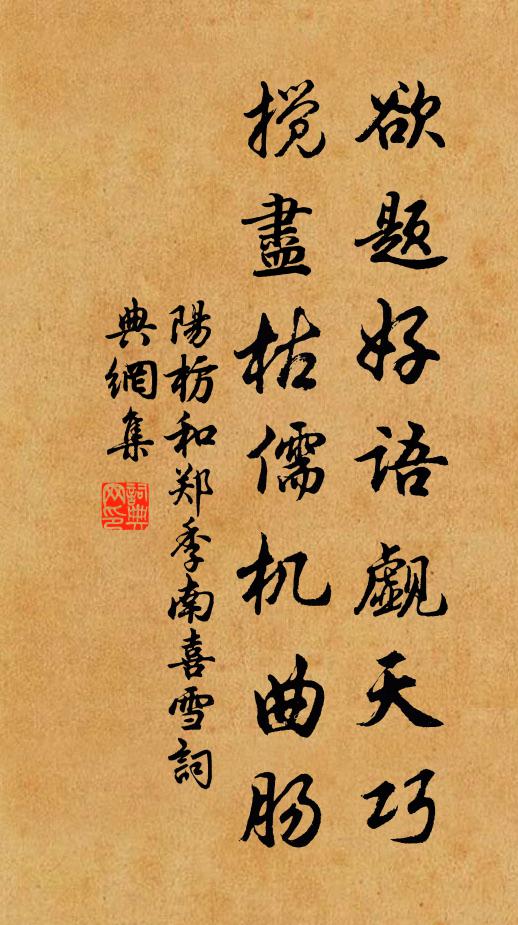 欲题好语觑天巧
搅盡枯儒机曲肠
陽枋和郑季南喜雪詞
典網集
詞典
网印